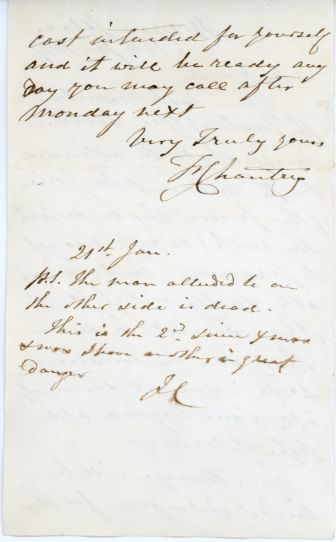 cast intended for yourself
and it will be ready any
Day you may call after
Monday next
Very Truly yours
F Chantrey
21st Jan.
p.s. The man alluded to on
the other side is dead.
This is the 2d. since Xmas
I have another in great
Danger
FC